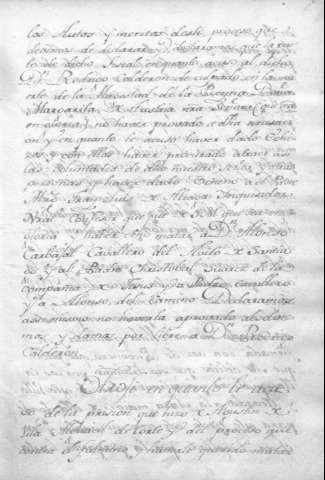 los Autos y meritos deste proceso que
devemos de declarar y declaramos que la par
te del dicho fiscal en quanto acuso al dicho
Dn Rodrigo Calderon de culpado en la mu
erte de la Magestad de la Reyna Doña
Margarita Nuestra Señora (que sea
en gloria) no haver provado su acusaci
on y en quanto le acuso haver dado echi
zos y con ellos haver procurado atraer a si
las voluntades de
personas y haver dado veneno al Padre
Mro Luis de Aliaga Inquisidor
Confesor que fue
gloria Dn Alonso
Carbajal Cavallero del Avito de Santia
go y al Padre Christobal Suarez de la
Compañia de Jesus a Pedro Cavallero
y a Alonso del Camino Declaramos
asi mismo no haverla aprovado absolve
mos y damos por libre a Dn Rodrigo
Calderon
Otrosi en quanto le acu
so de la prision que hizo de Agustin de
Avila Alguacil de Corte y del proceso que
contra el fulmino y haverle querido matar